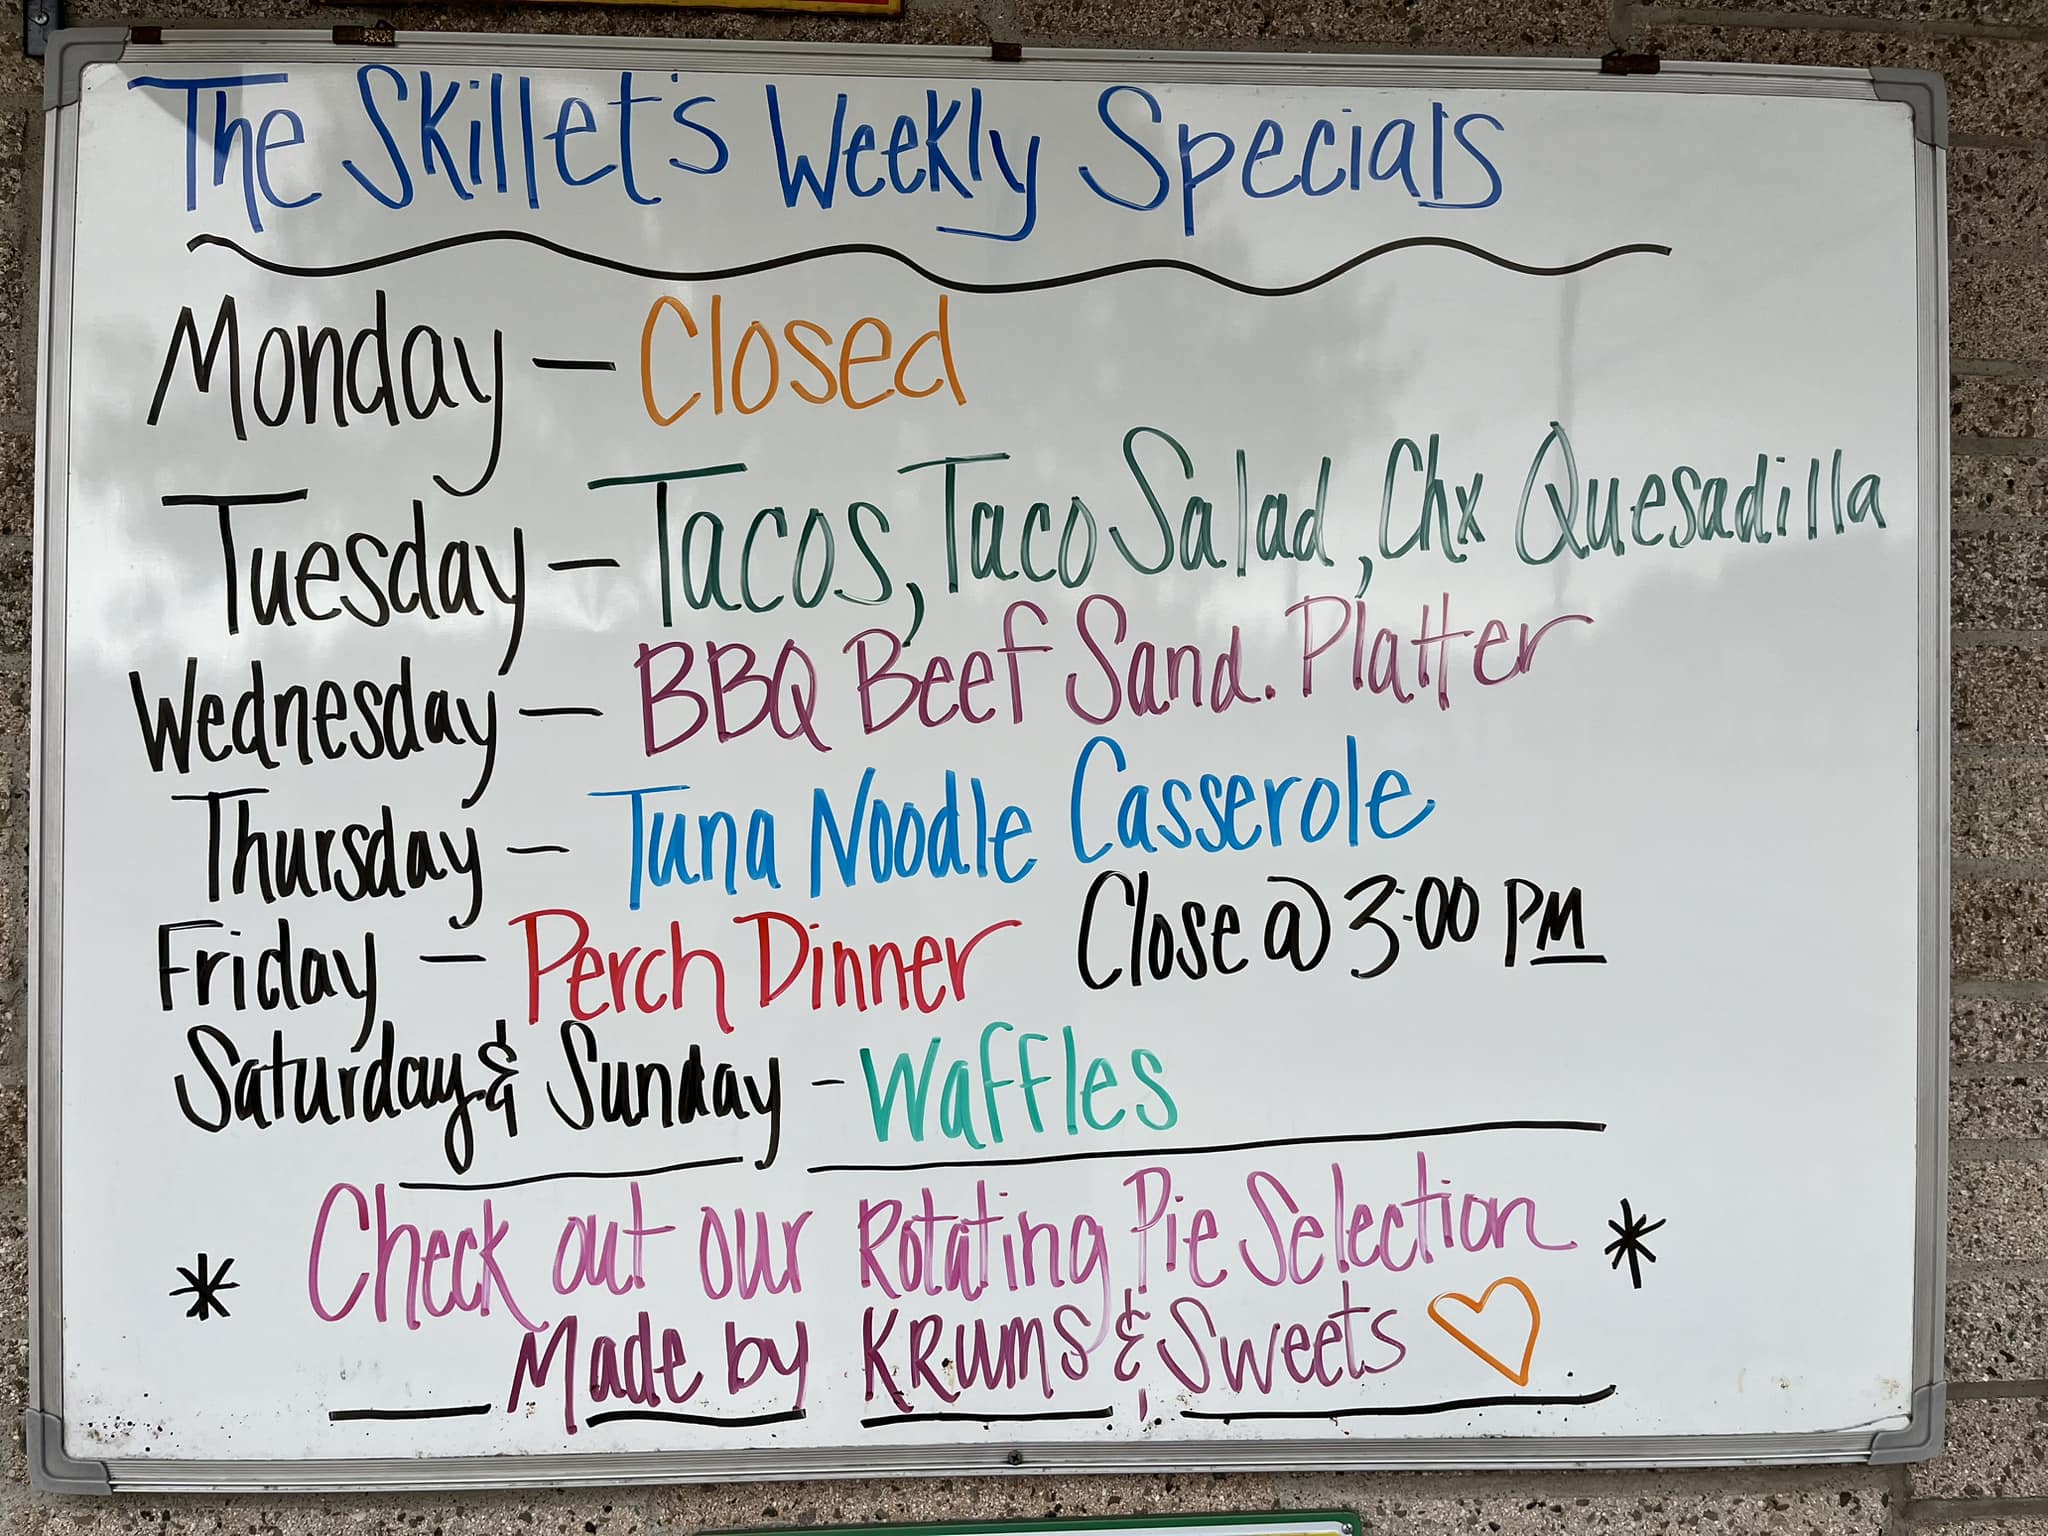 The Skillet's Weekly Specials
Monday - Closed
Tuesday - Tacos, Taco Salad, Chx Quesadilla
Wednesday - BBQ Beef Sand. Platter
Thursday - Tuna Noodle Casserole
Friday - Perch Dinner Close @ 3:00 PM
Saturday & Sunday - Waffles
* Check out our Rotating Pie Selection *
Made by KRUMS & Sweets ♡